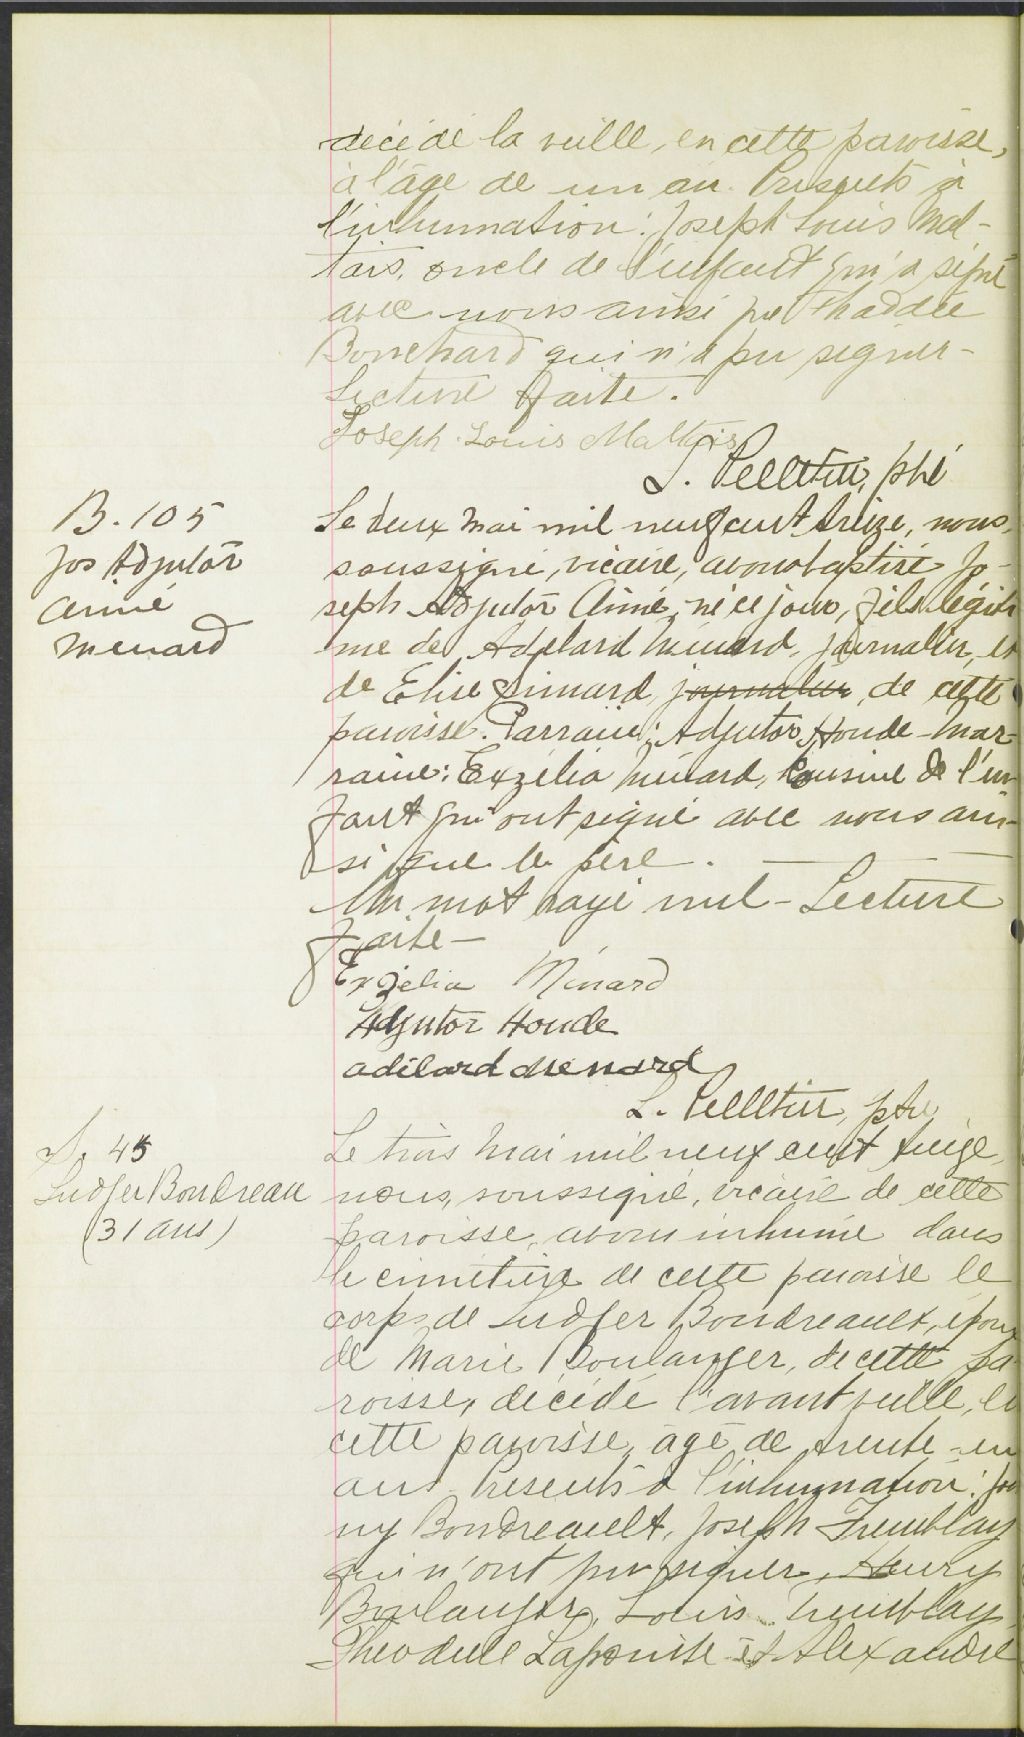 décédé la veille, en cette paroisse,
à l'âge de un an. Présents à
l'inhumation: Joseph Louis Mal-
tais, oncle de l'enfant qui a signé
avec nous ainsi que Thaddée
Bouchard qui n'a pu signer-
Lecture faite.
Joseph Louis Maltais
L. Pelletier, ptre
B. 105
Jos Adjutor
Aimé
Menard
Le deux Mai mil neuf cent treize, nous,
soussigné, vicaire, avons baptisé Jo-
seph Adjutor Aimé, né ce jour, fils légiti
me de Adélard Ménard, journalier, et
de Elise Simard, journalier, de cette
paroisse. Parrain: Adjutor Houde - Mar-
raine: Exzélia Ménard, cousine de l'en
fant qui ont signé avec nous ain-
si que le père.
Un mot rayé nul - Lecture
faite -
Exzélia Ménard
Adjutor Houde
adélard Menard
L. Pelletier, ptre
S. 45
Ludger Boudreau
(31 ans)
Le trois Mai mil neuf cent treize,
nous, soussigné, vicaire de cette
paroisse, avons inhumé dans
le cimetière de cette paroisse le
corps de Ludger Boudreault, époux
de Marie Boulanger, de cette pa-
roisse, décédé l'avant veille, en
cette paroisse, âgé de trente-un
ans. Présents à l'inhumation:
ny Boudreault, Joseph Tremblay
qui n'ont pu signer, Henry
Boulanger, Louis Tremblay,
Théodule Lapointe et Alexandre